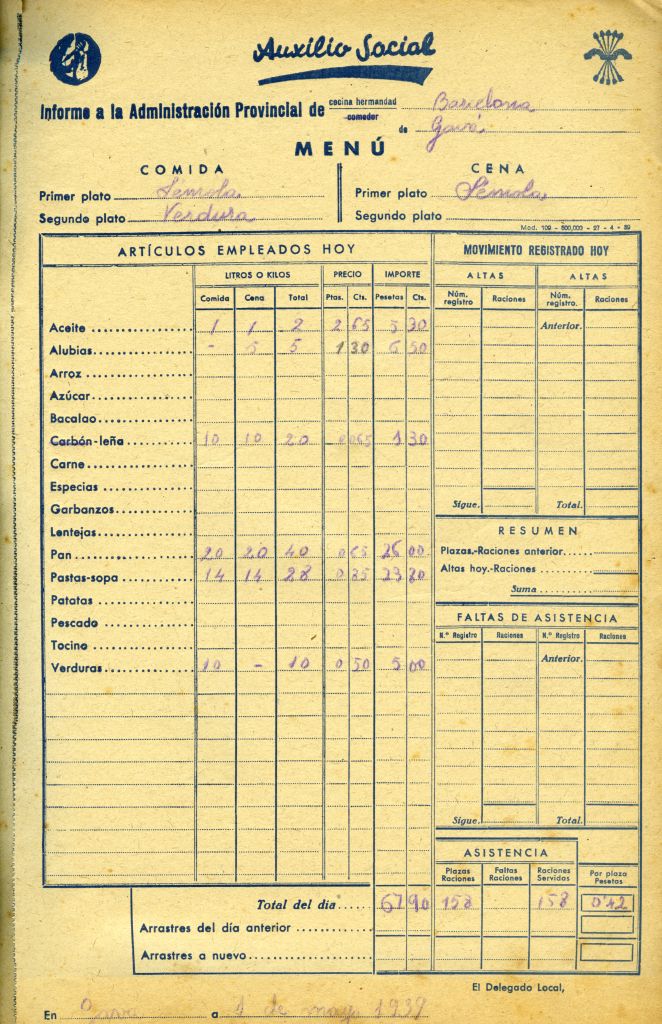 Auxilio Social
Informe a la Administración Provincial de cocina hermandad Barcelona
comedor de Gavá
MENÚ
COMIDA
Primer plato Sémola
Segundo plato Verdura
CENA
Primer plato Sémola
Segundo plato
Mod. 109 - 600,000 - 27 - 4 - 39
ARTÍCULOS EMPLEADOS HOY
LITROS O KILOS PRECIO IMPORTE
Comida Cena Total Ptas. Cts. Pesetas Cts.
Aceite 1 1 2 2 65 5 30
Alubias - 5 5 1 30 6 50
Arroz
Azúcar
Bacalao
Carbón-leña 10 10 20 0 065 1 30
Carne
Especias
Garbanzos
Lentejas
Pan 20 20 40 0 65 26 00
Pastas-sopa 14 14 28 0 85 23 80
Patatas
Pescado
Tocino
Verduras 10 - 10 0 50 5 00
MOVIMIENTO REGISTRADO HOY
ALTAS ALTAS
Núm. registro Raciones Núm. registro. Raciones
Anterior.
Sigue. Total.
RESUMEN
Plazas.-Raciones anterior
Altas hoy.-Raciones
Suma
FALTAS DE ASISTENCIA
N.º Registro Raciones N.º Registro Raciones
Anterior.
Sigue. Total.
ASISTENCIA
Plazas Raciones Faltas Raciones Raciones Servidas Por plaza Pesetas
Total del día 67 90 158 158 0'42
Arrastres del día anterior
Arrastres a nuevo
El Delegado Local,
En Gavá a 4 de mayo 1939